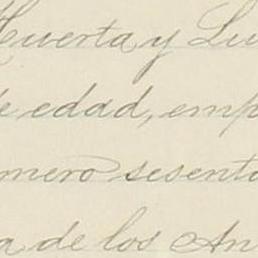 Huerta y Lu
de edad, emp
mero sesenta
a de los An